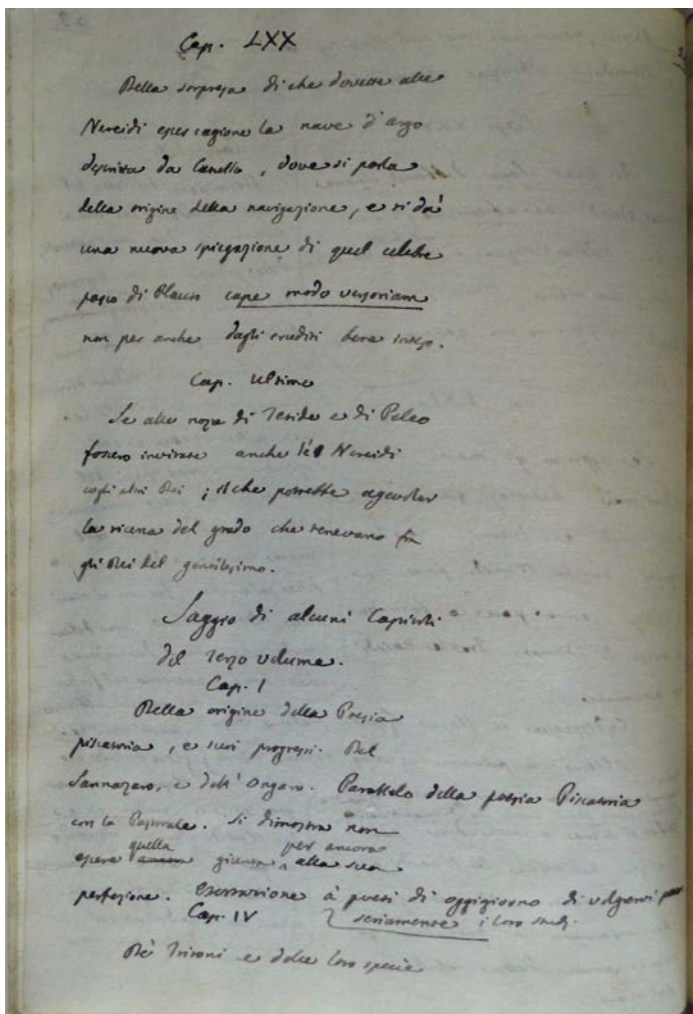 Cap. LXX
Della sorpresa di che dovette alle
Nereidi esser cagione la nave d'argo
descritta da Catullo, dove si parla
della origine della navigazione, e si dà
una nuova spiegazione di quel celebre
passo di Plauto cape modo vorsoriam
non per anche dagli eruditi bene inteso.
Cap. ultimo
Se alle nozze di Tetide e di Peleo
fossero invitate anche le Nereidi
cogli altri Dei; il che potrebbe agevolar
la ricerca del grado che tenevano fra
gli Dei del gentilesimo.
Saggio di alcuni Capitoli
del terzo volume.
Cap. I
Della origine della Poesia
piscatoria, e suoi progressi. Del
Sannazaro, e dell'Ongaro. Parallelo della poesia Piscatoria
con la Pastorale. Si dimostra non
quella per ancora
essere giunta alla sua
perfezione. Esortazione a' poeti di oggigiorno di volgervi
Cap. IV seriamente i loro studj.
De' Tritoni e delle loro specie